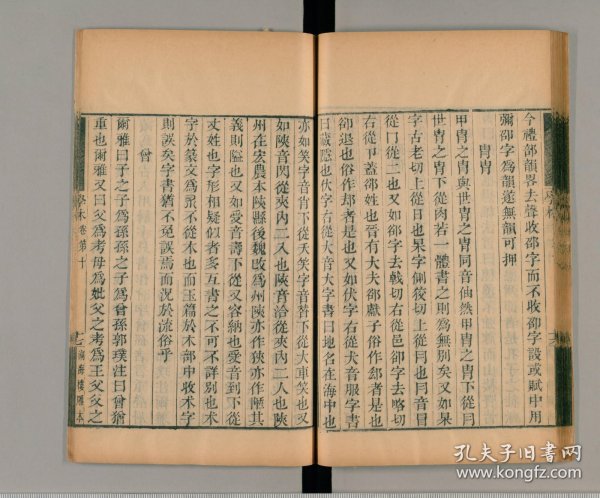 今禮部韻畧去聲收卻字而不收卻字設或賦中用
彌卻字為韻遂無韻可押
冑胄
甲冑之冑與世胄之胄同音仙然甲冑之冑下從冃
世胄之胄下從肉若一體書之則為無別矣又如杲
字古老切上從日也杲字
從冂從二也又如卻字去戟切右從邑卻字去略切
右從卩蓋郤姓也晉有大夫郤獻子俗作郄者是也
卻退也俗作却者是也又如伏字右從犬音服字書
曰藏隱也伏字右從大音大字書曰地名在海中也
亦如笑字音肖下從夭笑字音替下從大車笑也又
如陝音閃從夾內二入也陜音洽從夾內二人也陝
州在宏農本陜縣後魏改為州陜亦作狹亦作陿其
義則隘也又如愛音壽下從又容納也愛音到下從
丈姓也字形相疑似者多互書之不可不詳別也木
字於篆文為朩不從木也而玉篇於木部中收朩字
則誤矣字書猶不免誤焉而況於流俗乎
曾
爾雅曰子之子為孫孫之子為曾孫郭璞注曰曾猶
重也爾雅又曰父為考母為妣父之考為王父父之
學林卷第十
湖海樓雕本
孔夫子旧书网
www.kongfz.com